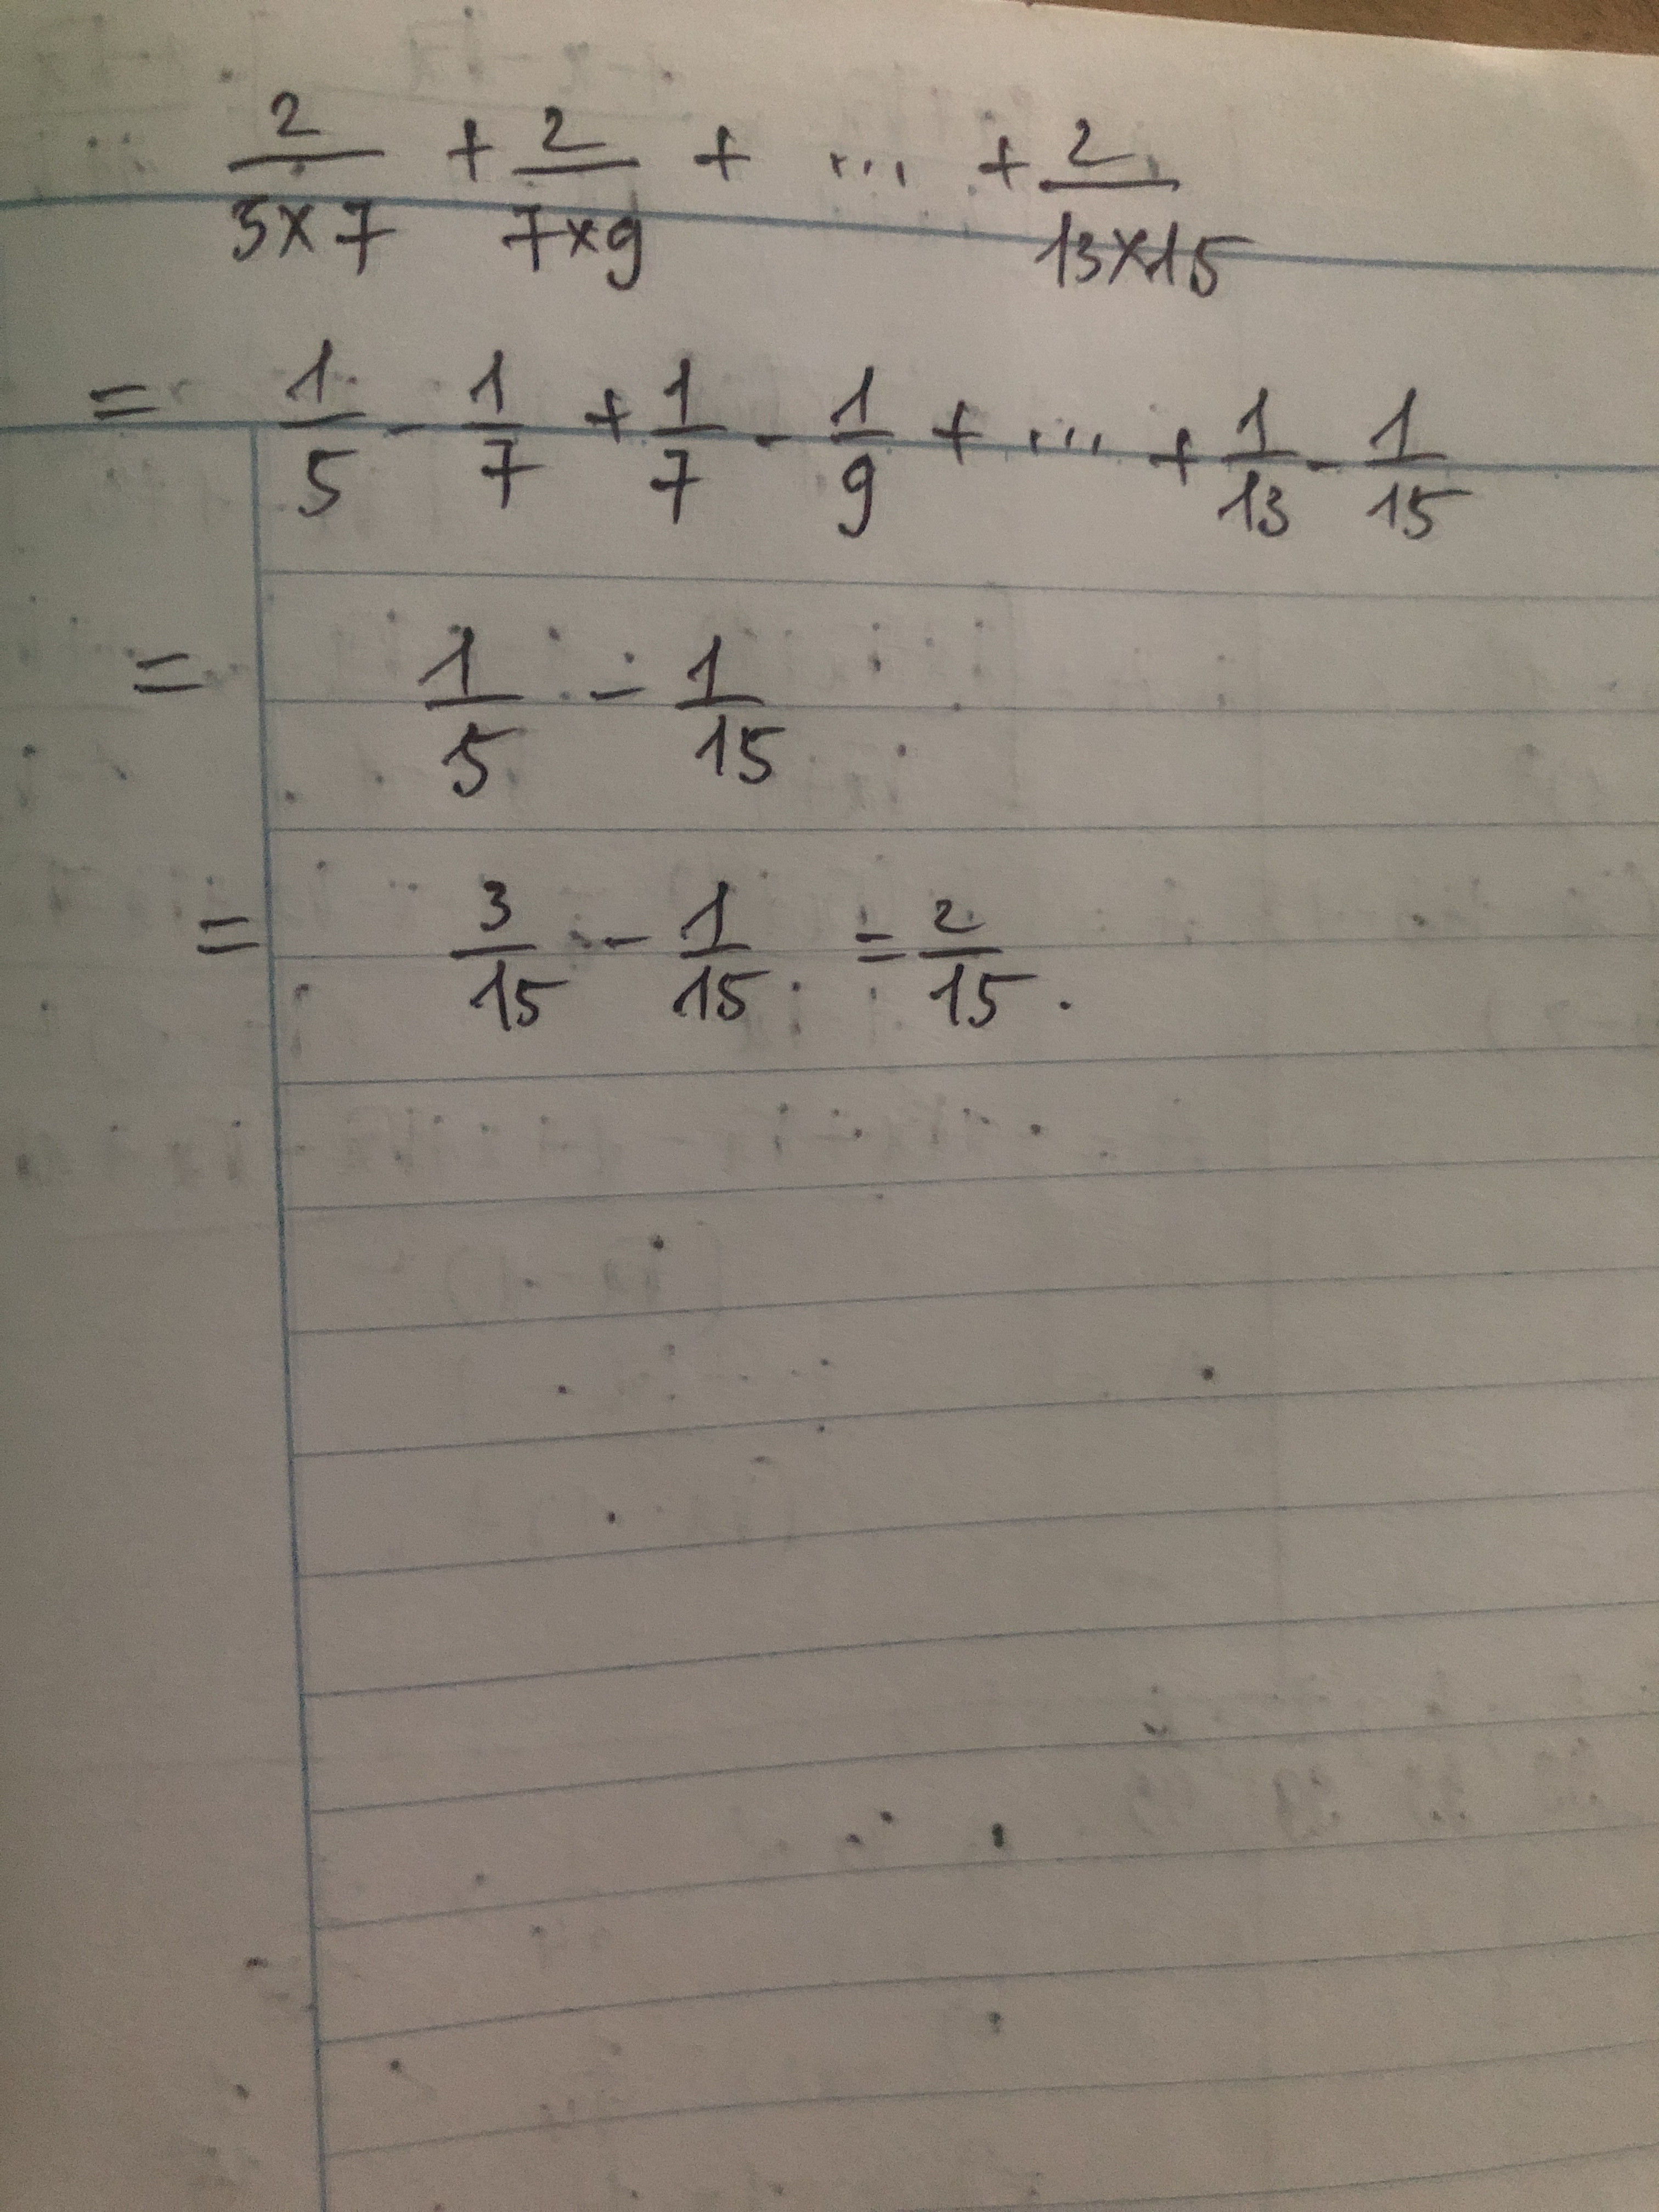 2/5×7 + 2/7×9 + ... + 2/13×15
= 1/5 - 1/7 + 1/7 - 1/9 + ... + 1/13 - 1/15
= 1/5 - 1/15
= 3/15 - 1/15 = 2/15.